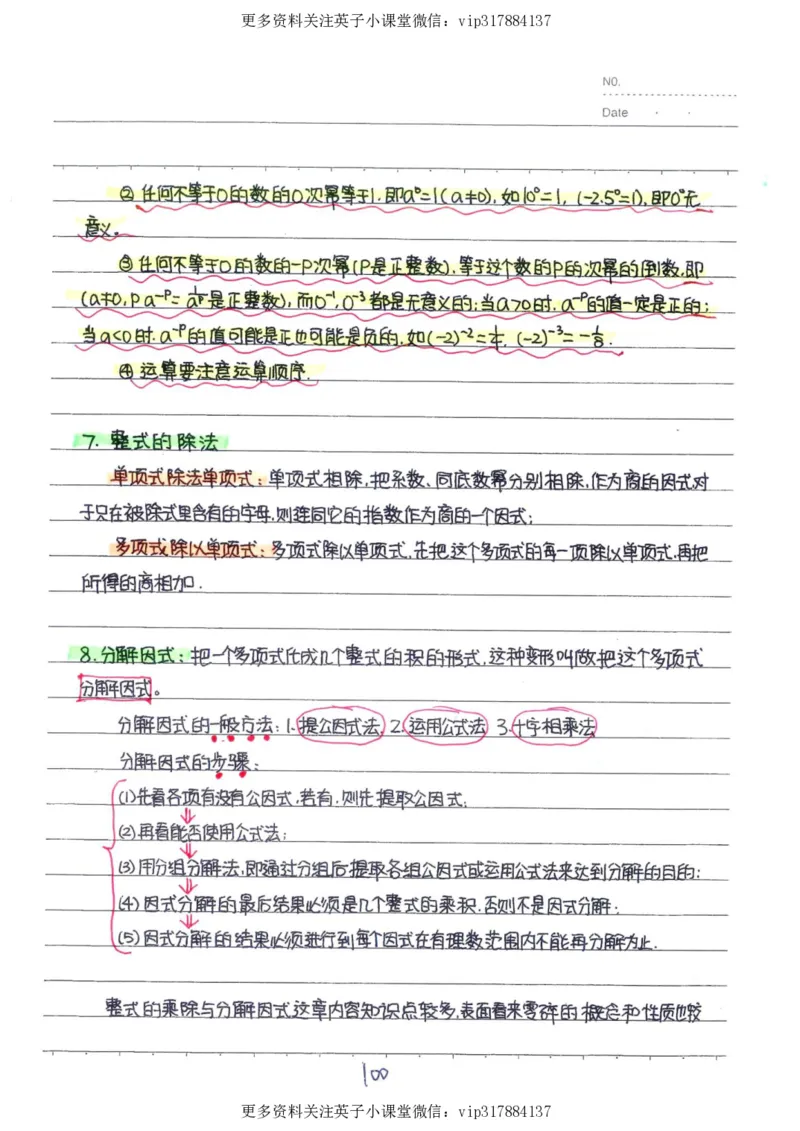 更多资料关注英子小课堂微信：vip317884137
NO.
Date
② 任何不等于0的数的0次幂等于1.即a⁰=1(a≠0),如10⁰=1,(-2.5⁰=1),即0⁰无
意义。
③ 任何不等于0的数的-P次幂(P是正整数),等于这个数的P的次幂的倒数,即
(a≠0,P a⁻ᵖ=1/aᵖ是正整数),而0⁻¹,0⁻³都是无意义的;当a>0时.a⁻ᵖ的值一定是正的;
当a<0时.a⁻ᵖ的值可能是正也可能是负的,如(-2)⁻²=1/4,(-2)⁻³=-1/8.
④ 运算要注意运算顺序.
7. 整式的除法
单项式除法单项式:单项式相除,把系数、同底数幂分别相除,作为商的因式对
于只在被除式里含有的字母,则连同它的指数作为商的一个因式;
多项式除以单项式:多项式除以单项式,先把这个多项式的每一项除以单项式,再把
所得的商相加.
8.分解因式:把一个多项式化成几个整式的积的形式,这种变形叫做把这个多项式
分解因式。
分解因式的一般方法:1.提公因式法,2.运用公式法 3.十字相乘法
分解因式的步骤:
(1)先看各项有没有公因式,若有,则先提取公因式;
(2)再看能否使用公式法;
(3)用分组分解法,即通过分组后提取各组公因式或运用公式法来达到分解的目的;
(4)因式分解的最后结果必须是几个整式的乘积,否则不是因式分解;
(5)因式分解的结果必须进行到每个因式在有理数范围内不能再分解为止.
整式的乘除与分解因式这章内容知识点较多,表面看来零碎的概念和性质也较
100
更多资料关注英子小课堂微信：vip317884137